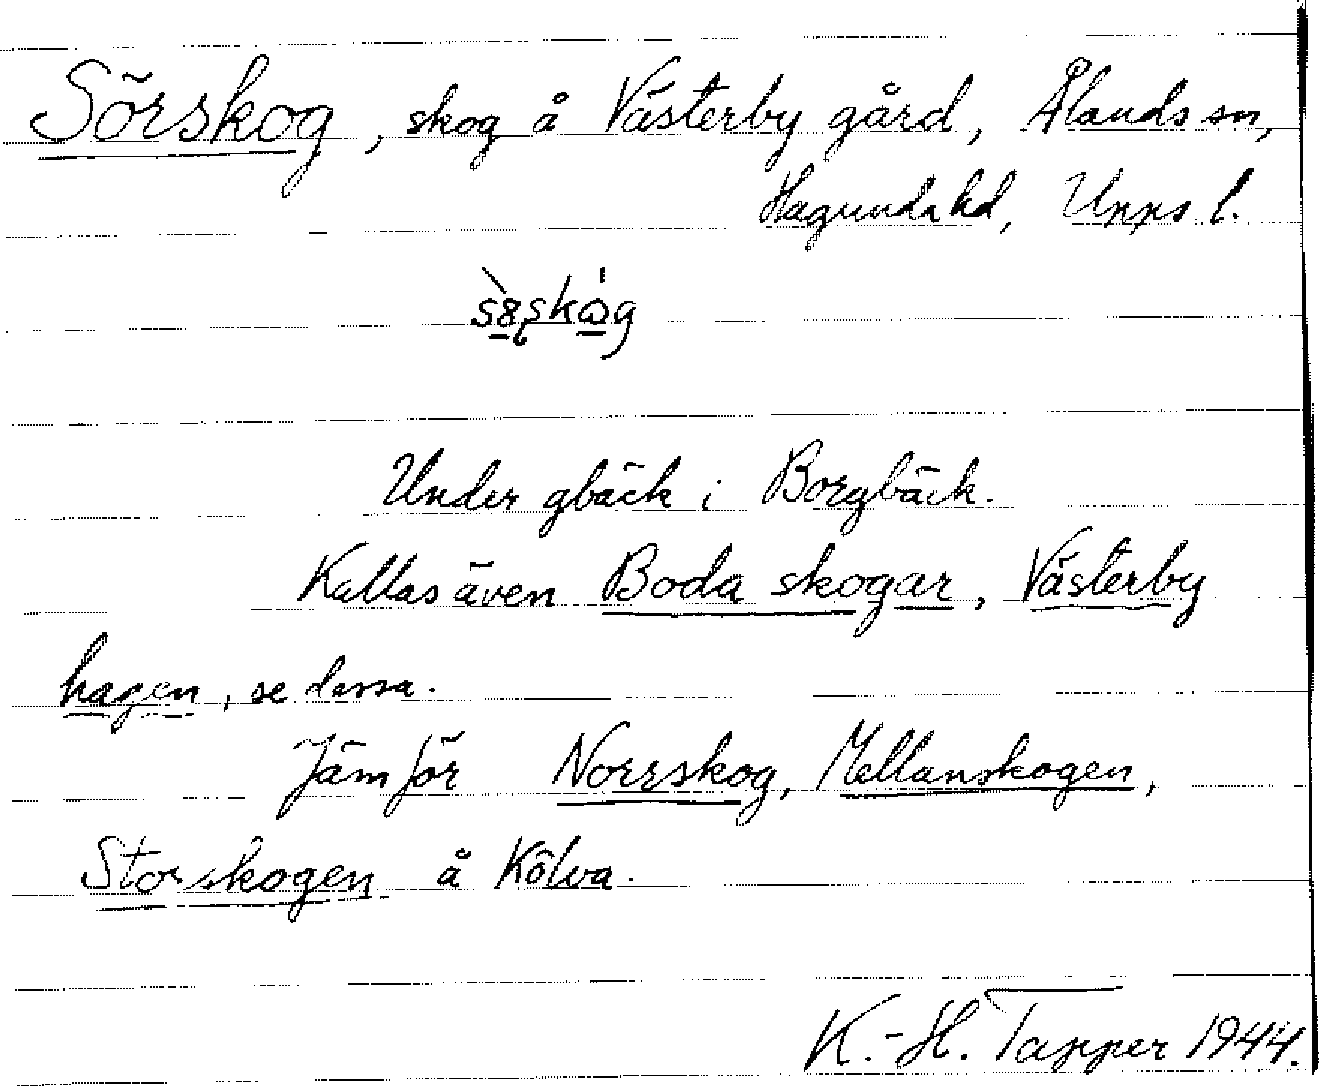 Sörskog, skog å Västerby gård, Ålands sn,
Hagunda hd, Upps l.
Under gbäck i Borgbäck.
Kallas även Boda skogar, Västerby
hagen, se dessa.
Jämför Norrskog, Mellanskogen,
Storskogen å Kölva.
K.-H. Tapper 1944.